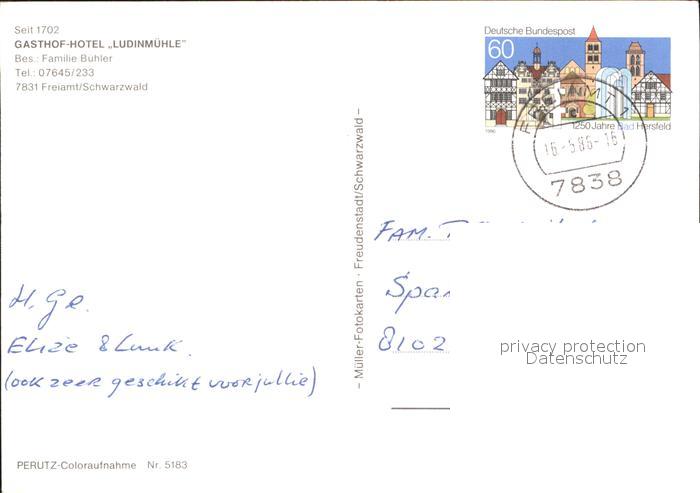 Seit 1702
GASTHOF-HOTEL „LUDINMÜHLE"
Bes.: Familie Buhler
Tel.: 07645/233
7831 Freiamt/Schwarzwald
Deutsche Bundespost
60
1986
1250 Jahre Bad Hersfeld
FREIAMT 1
16.-5.86-16
7838
– Müller-Fotokarten · Freudenstadt/Schwarzwald –
FAM.
8102
H. Gr.
Elize &
(ook zeer geschikt voor jullie)
privacy protection
Datenschutz
PERUTZ-Coloraufnahme Nr. 5183